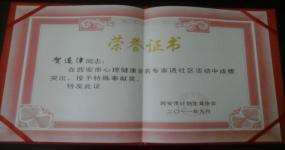 荣誉证书
贺连津同志：
在西安市心理健康百名专家进社区活动中成绩
突出，授予特殊奉献奖。
特发此证
西安市计划生育协会
二〇一一年九月